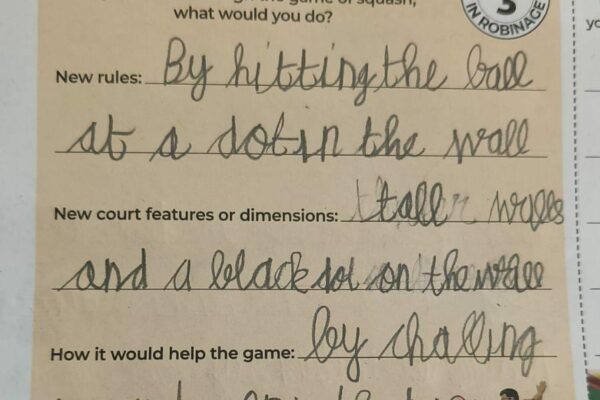 the game of squash,
what would you do?
3
IN ROBINAGE
New rules: By hitting the ball
at a dot in the wall
New court features or dimensions: tall walls
and a black dot on the wall
How it would help the game: by challing